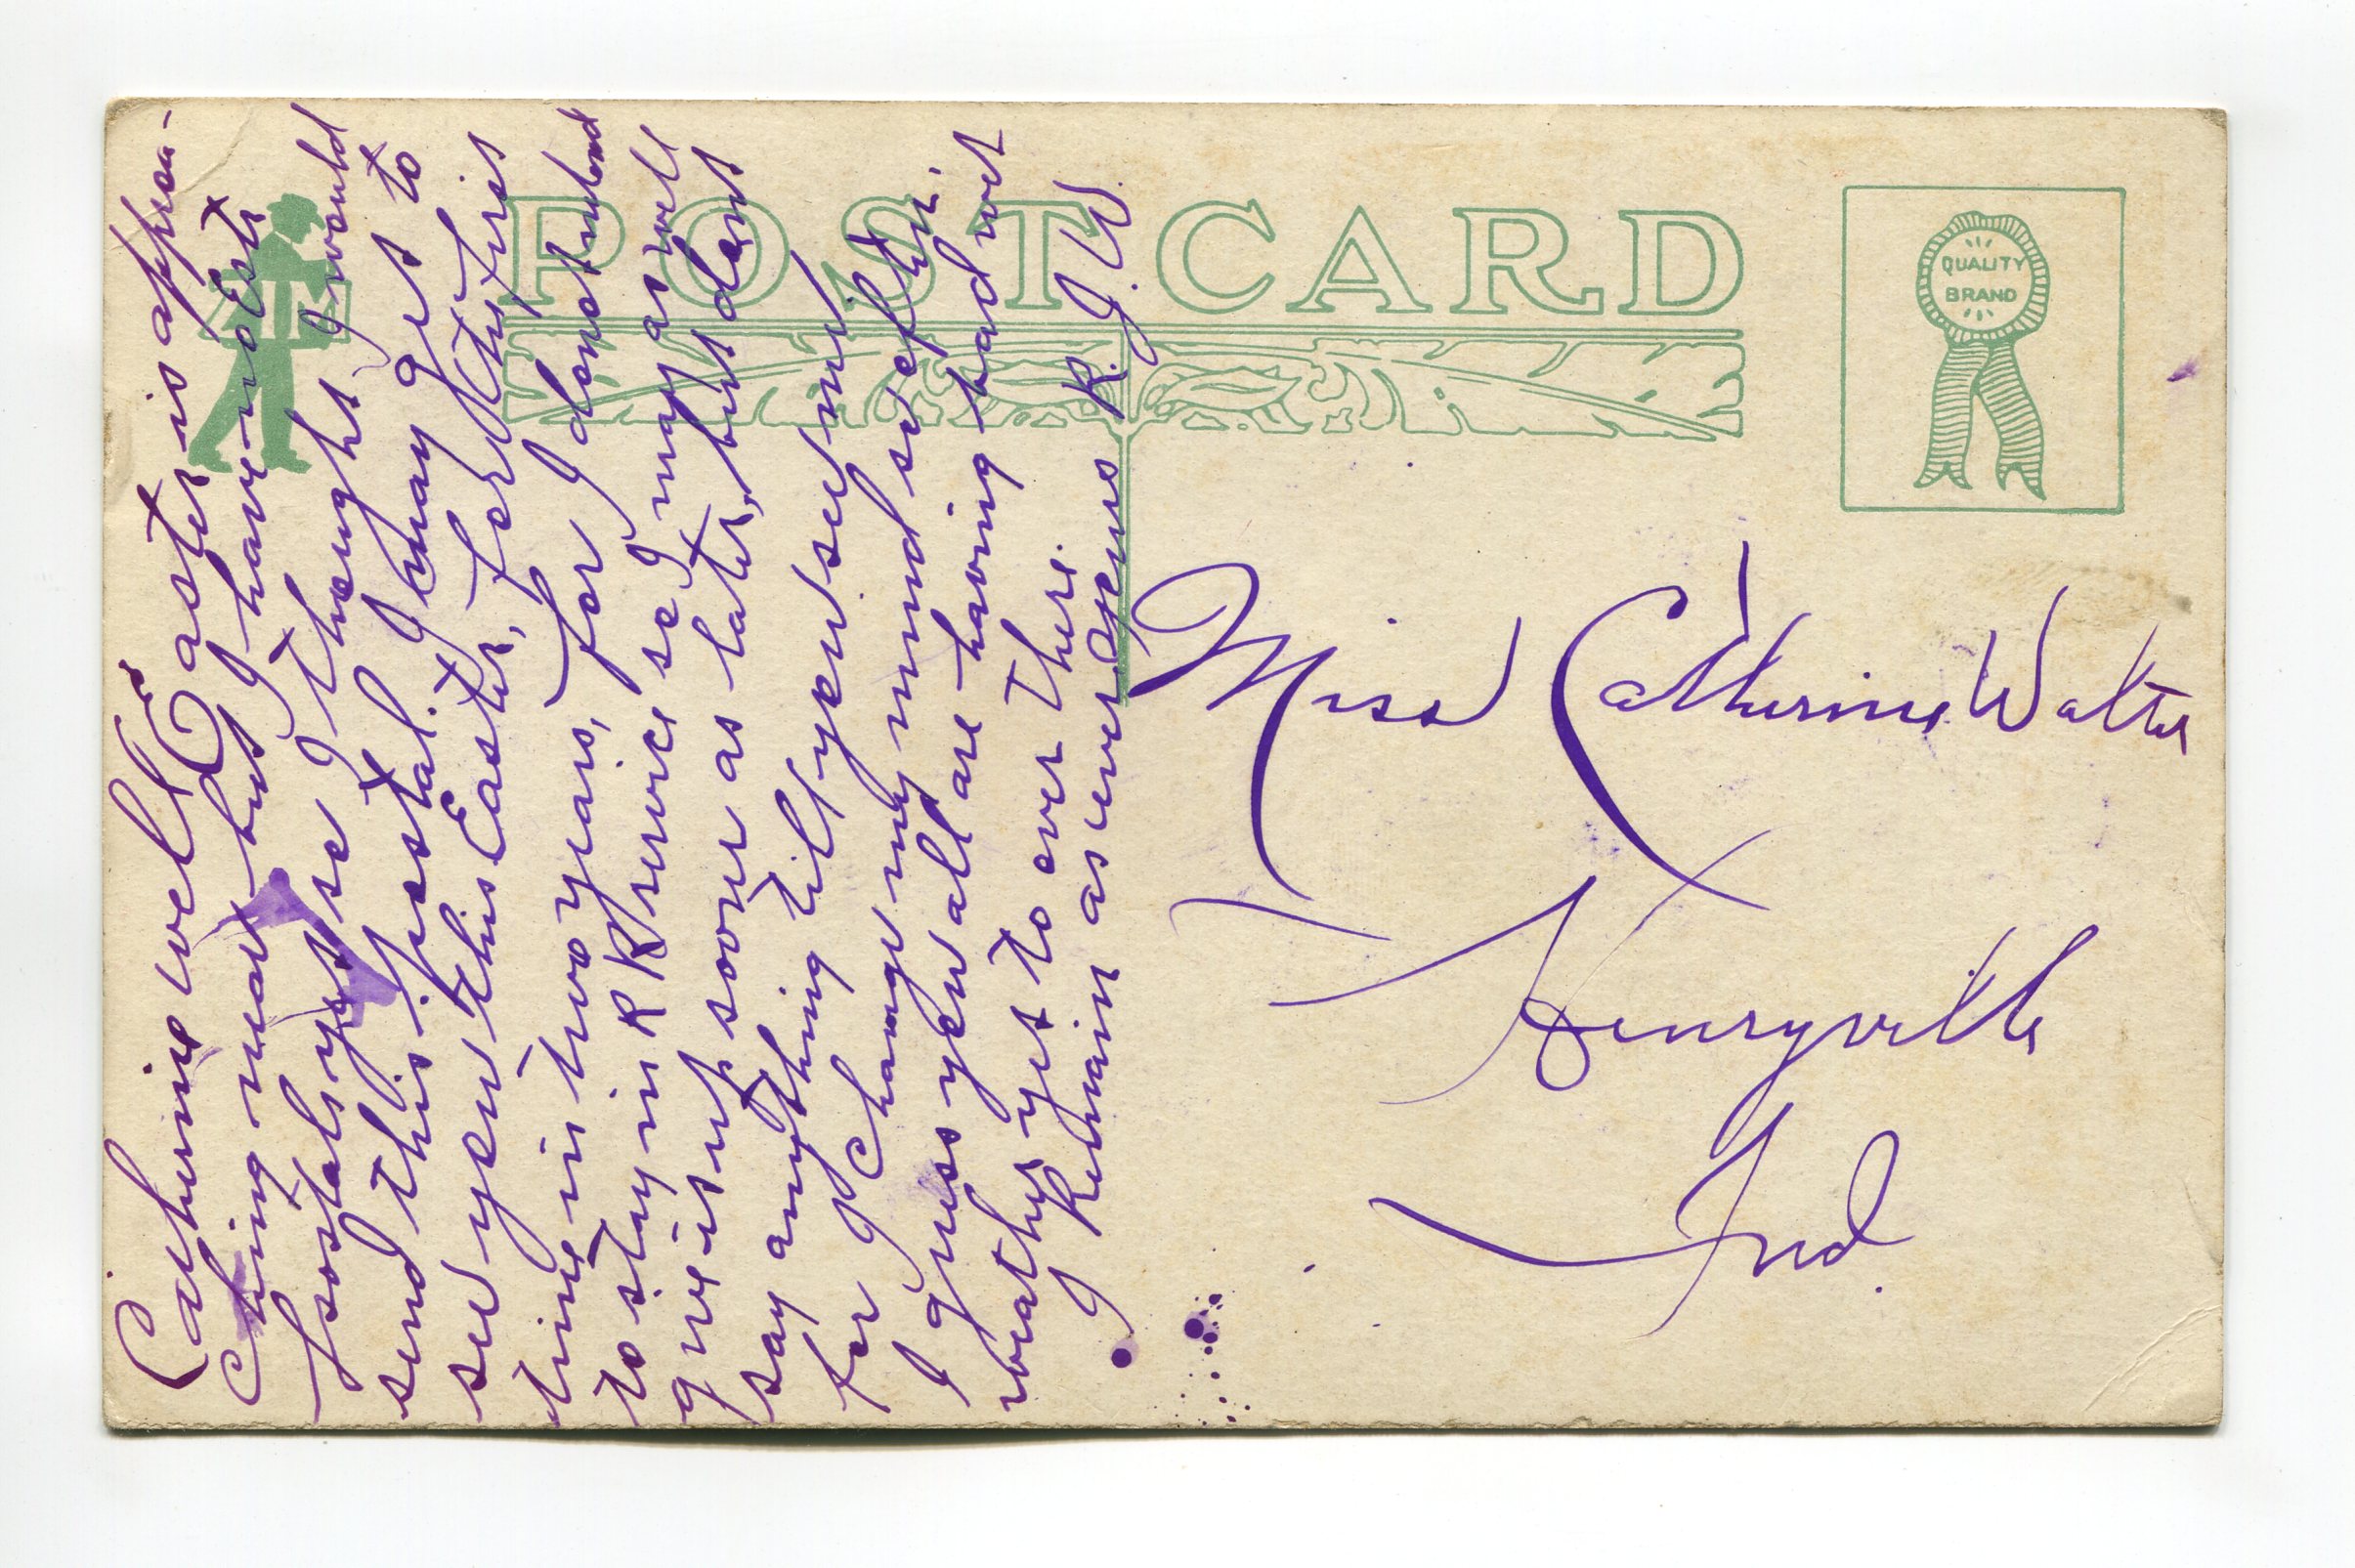 POST CARD
QUALITY
BRAND
Catherine well Easter is approa-
ching near but I have no Est
postals yet so I thought I would
send this postal. I may get to
see you this Easter, for the first
time in two years, for I dont intend
to stay in R R service so I may as well
give it up soone as later, but dont
say anything till you see me
for I change my mind so often.
I guess you all are having bad wet
weather yet to over there.
I Remain as ever yours R. J. W.
Miss Catherine Walter
Henryville
Ind.